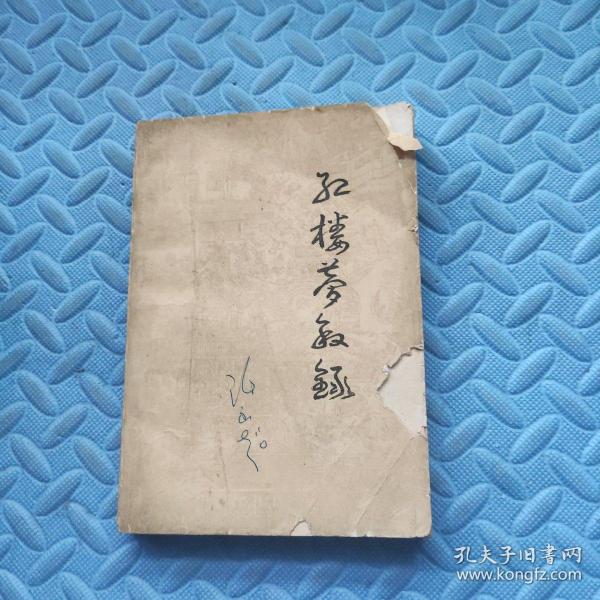 红楼梦叙録
孔夫子旧書网
www.kongfz.com